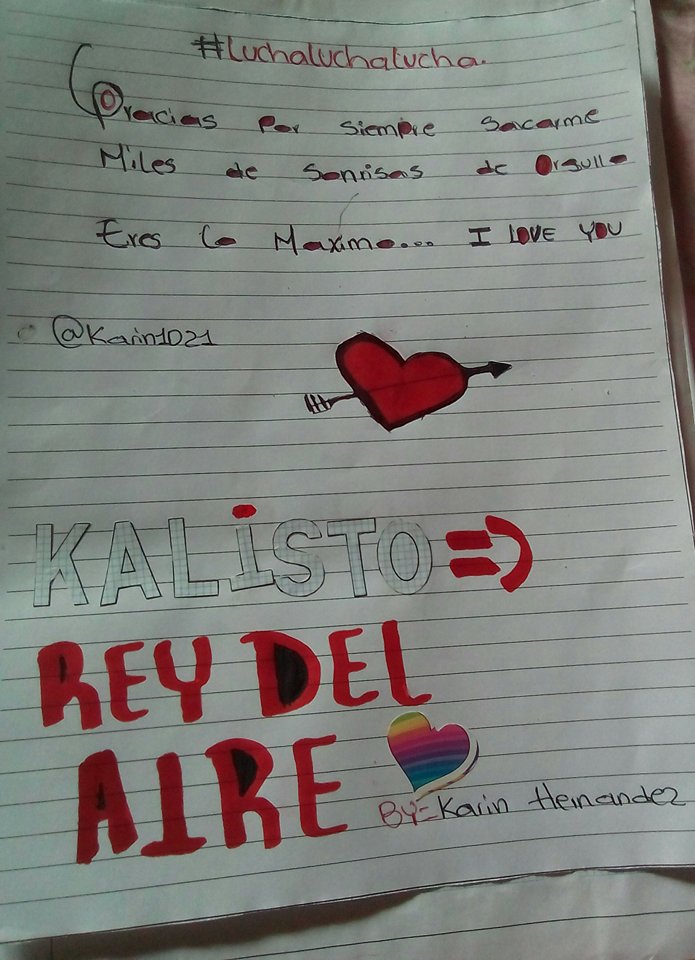 #Luchaluchalucha.
Gracias por siempre sacarme
Miles de sonrisas de Orgullo
Eres lo Maximo... I LOVE YOU
@Karin1021
KALiSTO =)
REY DEL
AIRE
BY= Karin Hernandez